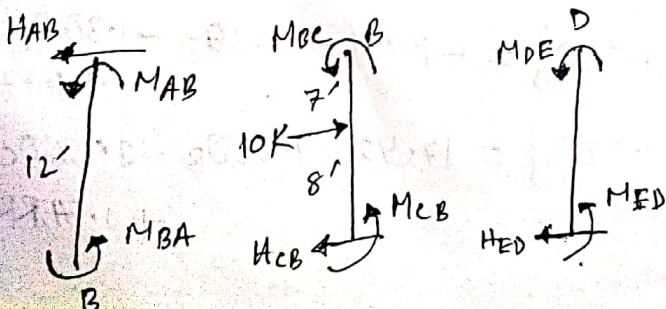 HAB
MAB
12'
MBA
B
MBC B
7'
10K
8'
MCB
HCB
D
MDE
MED
HED